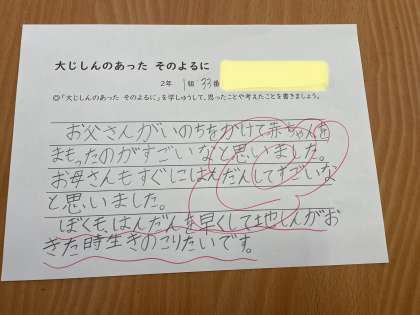 大じしんのあった そのよるに
2年 1組 33番
◎「大じしんのあった そのよるに」を学しゅうして、思ったことや考えたことを書きましょう。
お父さんがいのちをかけて赤ちゃんを
まもったのがすごいなと思いました。
お母さんもすぐにはんだんしてすごいな
と思いました。
ぼくも、はんだんを早くして地しんがお
きた時生きのこりたいです。